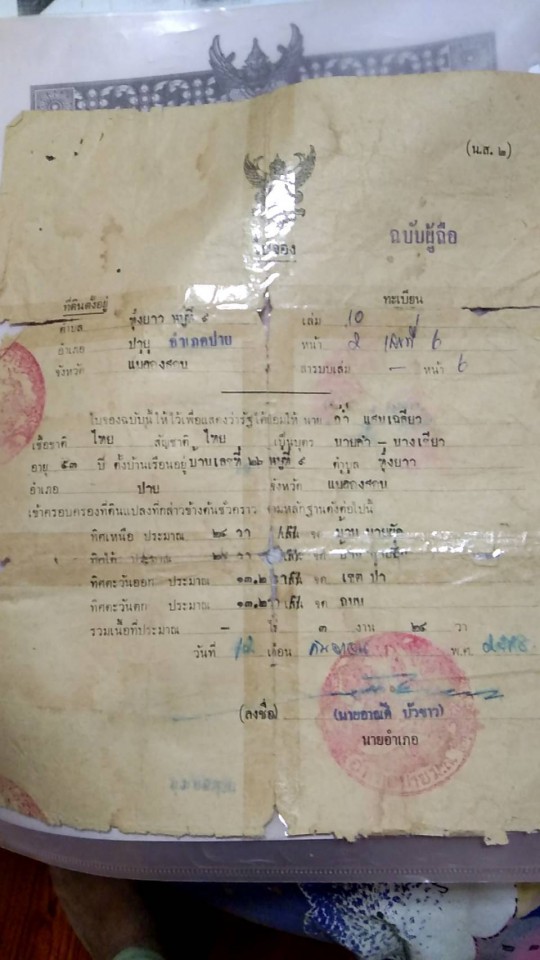 (น.ส. ๒)
ใบจอง
ฉบับผู้ถือ
ที่ดินตั้งอยู่
ทะเบียน
ตำบล ทุ่งยาว หมู่ที่ ๙
เล่ม 10
อำเภอ ปาย อำเภอปาย
หน้า ๕ เลขที่ 6
จังหวัด แม่ฮ่องสอน
สารบบเล่ม - หน้า 6
ใบจองฉบับนี้ให้ไว้เพื่อแสดงว่ารัฐได้ยอมให้ นาย คำ แสนเฉลียว
เชื้อชาติ ไทย สัญชาติ ไทย เป็นบุตร นายคำ - นางเขียว
อายุ ๕๓ ปี ตั้งบ้านเรือนอยู่ บ้านเลขที่ ๒๖ หมู่ที่ ๙ ตำบล ทุ่งยาว
อำเภอ ปาย จังหวัด แม่ฮ่องสอน
เข้าครอบครองที่ดินแปลงที่กล่าวข้างต้นชั่วคราว ตามหลักฐานดังต่อไปนี้
ทิศเหนือ ประมาณ ๒๔ วา จด บ้าน
ทิศใต้ ประมาณ ๒๔ วา จด บ้าน
ทิศตะวันออก ประมาณ ๑๓.๒ วา จด เขต ป่า
ทิศตะวันตก ประมาณ ๑๓.๒ วา จด ถนน
รวมเนื้อที่ประมาณ - ไร่ ๓ งาน ๒๔ วา
วันที่ เดือน กันยายน พ.ศ.
(ลงชื่อ)
บัวขาว)
นายอำเภอ